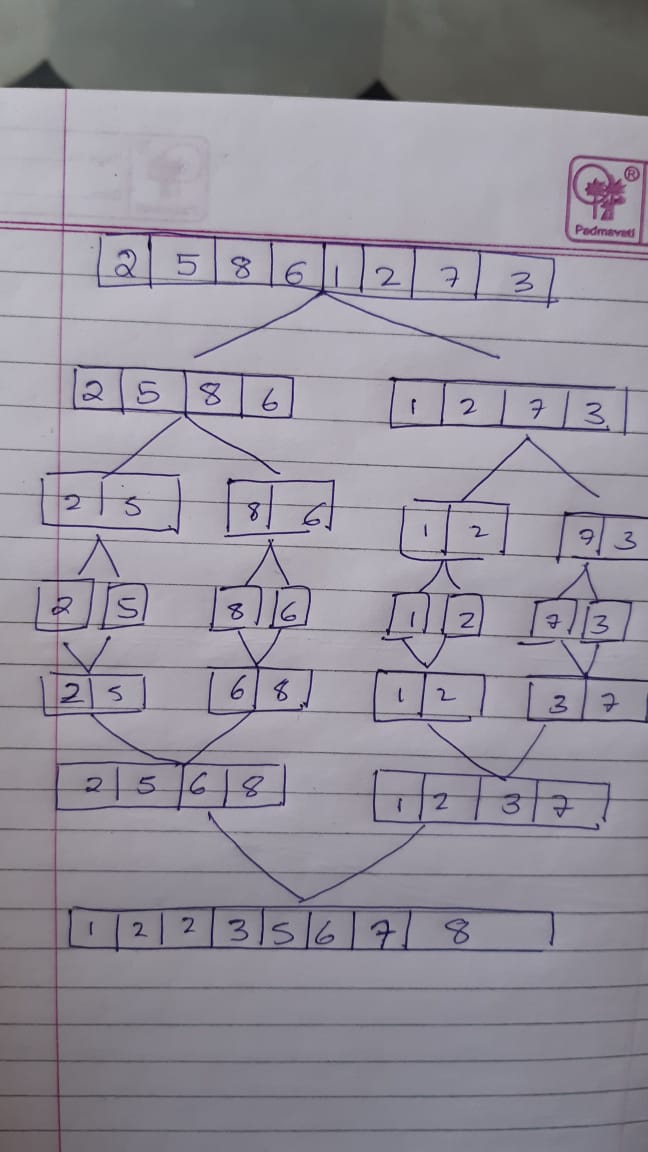 ®
Padmavati
2 5 8 6 1 2 7 3
2 5 8 6 1 2 7 3
2 5 8 6 1 2 7 3
2 5 8 6 1 2 7 3
2 5 6 8 1 2 3 7
2 5 6 8 1 2 3 7
1 2 2 3 5 6 7 8